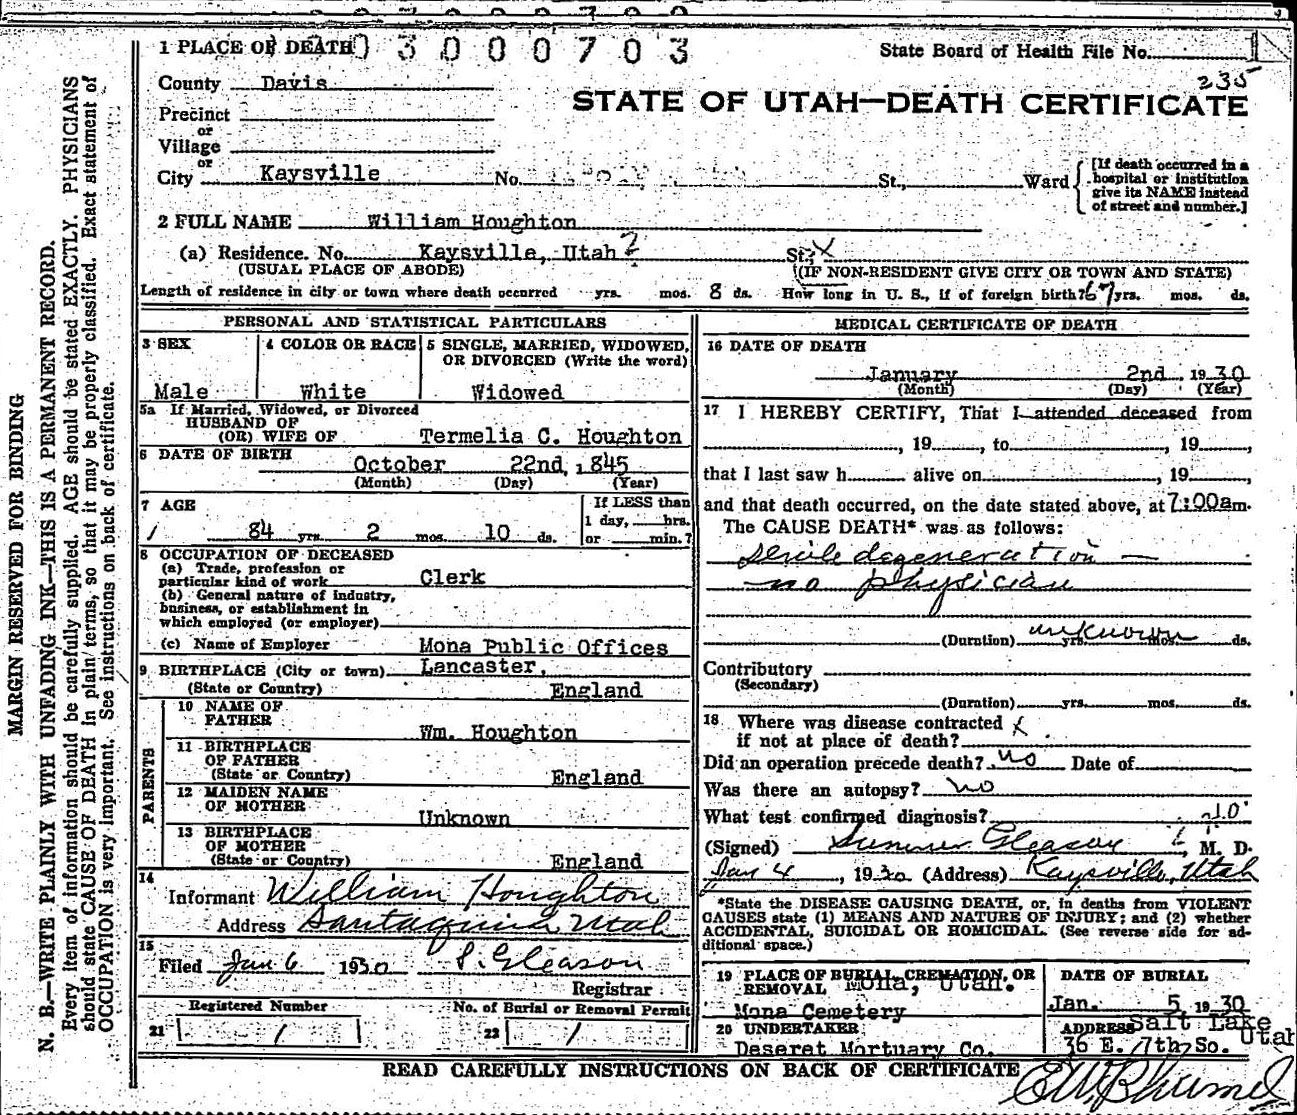 1 PLACE OF DEATH 3 0 0 0 7 0 3
State Board of Health File No.
235
County Davis
STATE OF UTAH—DEATH CERTIFICATE
Precinct
or
Village
or
City Kaysville No. St., Ward
[If death occurred in a
hospital or institution
give its NAME instead
of street and number.]
2 FULL NAME William Houghton
(a) Residence. No. Kaysville, Utah ? St. X
(USUAL PLACE OF ABODE) (IF NON-RESIDENT GIVE CITY OR TOWN AND STATE)
Length of residence in city or town where death occurred yrs. mos. 8 ds. How long in U. S., if of foreign birth? 67 yrs. mos. ds.
PERSONAL AND STATISTICAL PARTICULARS
3 SEX
Male
4 COLOR OR RACE
White
5 SINGLE, MARRIED, WIDOWED,
OR DIVORCED (Write the word)
Widowed
5a If Married, Widowed, or Divorced
HUSBAND OF
(OR) WIFE OF Termelia C. Houghton
6 DATE OF BIRTH
October 22nd, 1845
(Month) (Day) (Year)
7 AGE
84 yrs. 2 mos. 10 ds.
If LESS than
1 day, hrs.
or min.?
8 OCCUPATION OF DECEASED
(a) Trade, profession or
particular kind of work Clerk
(b) General nature of industry,
business, or establishment in
which employed (or employer)
(c) Name of Employer Mona Public Offices
9 BIRTHPLACE (City or town) Lancaster,
(State or Country) England
PARENTS
10 NAME OF
FATHER
Wm. Houghton
11 BIRTHPLACE
OF FATHER
(State or Country) England
12 MAIDEN NAME
OF MOTHER
Unknown
13 BIRTHPLACE
OF MOTHER
(State or Country) England
14
Informant William Houghton
Address Santaquin Utah
15
Filed Jan 6 1930 S. Gleason
Registrar
Registered Number
21 1
No. of Burial or Removal Permit
22 1
MEDICAL CERTIFICATE OF DEATH
16 DATE OF DEATH
January 2nd, 1930
(Month) (Day) (Year)
17 I HEREBY CERTIFY, That I attended deceased from
, 19 , to , 19 ,
that I last saw h alive on , 19 ,
and that death occurred, on the date stated above, at 7:00am.
The CAUSE DEATH* was as follows:
senile degeneration —
no physician
(Duration) unknown yrs. mos. ds.
Contributory
(Secondary)
(Duration) yrs. mos. ds.
18 Where was disease contracted X
if not at place of death?
Did an operation precede death? no Date of
Was there an autopsy? no
What test confirmed diagnosis? 10
(Signed) Sumner Gleason, M. D.
Jan 4, 1930 (Address) Kaysville, Utah
*State the DISEASE CAUSING DEATH, or, in deaths from VIOLENT
CAUSES state (1) MEANS AND NATURE OF INJURY; and (2) whether
ACCIDENTAL, SUICIDAL OR HOMICIDAL. (See reverse side for ad-
ditional space.)
19 PLACE OF BURIAL, CREMATION, OR
REMOVAL Mona, Utah.
Mona Cemetery
DATE OF BURIAL
Jan. 5 1930
20 UNDERTAKER
Deseret Mortuary Co.
ADDRESS Salt Lake
36 E. 7th So. Utah
READ CAREFULLY INSTRUCTIONS ON BACK OF CERTIFICATE
MARGIN RESERVED FOR BINDING
N. B.—WRITE PLAINLY WITH UNFADING INK—THIS IS A PERMANENT RECORD.
Every item of information should be carefully supplied. AGE should be stated EXACTLY. PHYSICIANS
should state CAUSE OF DEATH in plain terms, so that it may be properly classified. Exact statement of
OCCUPATION is very important. See instructions on back of certificate.